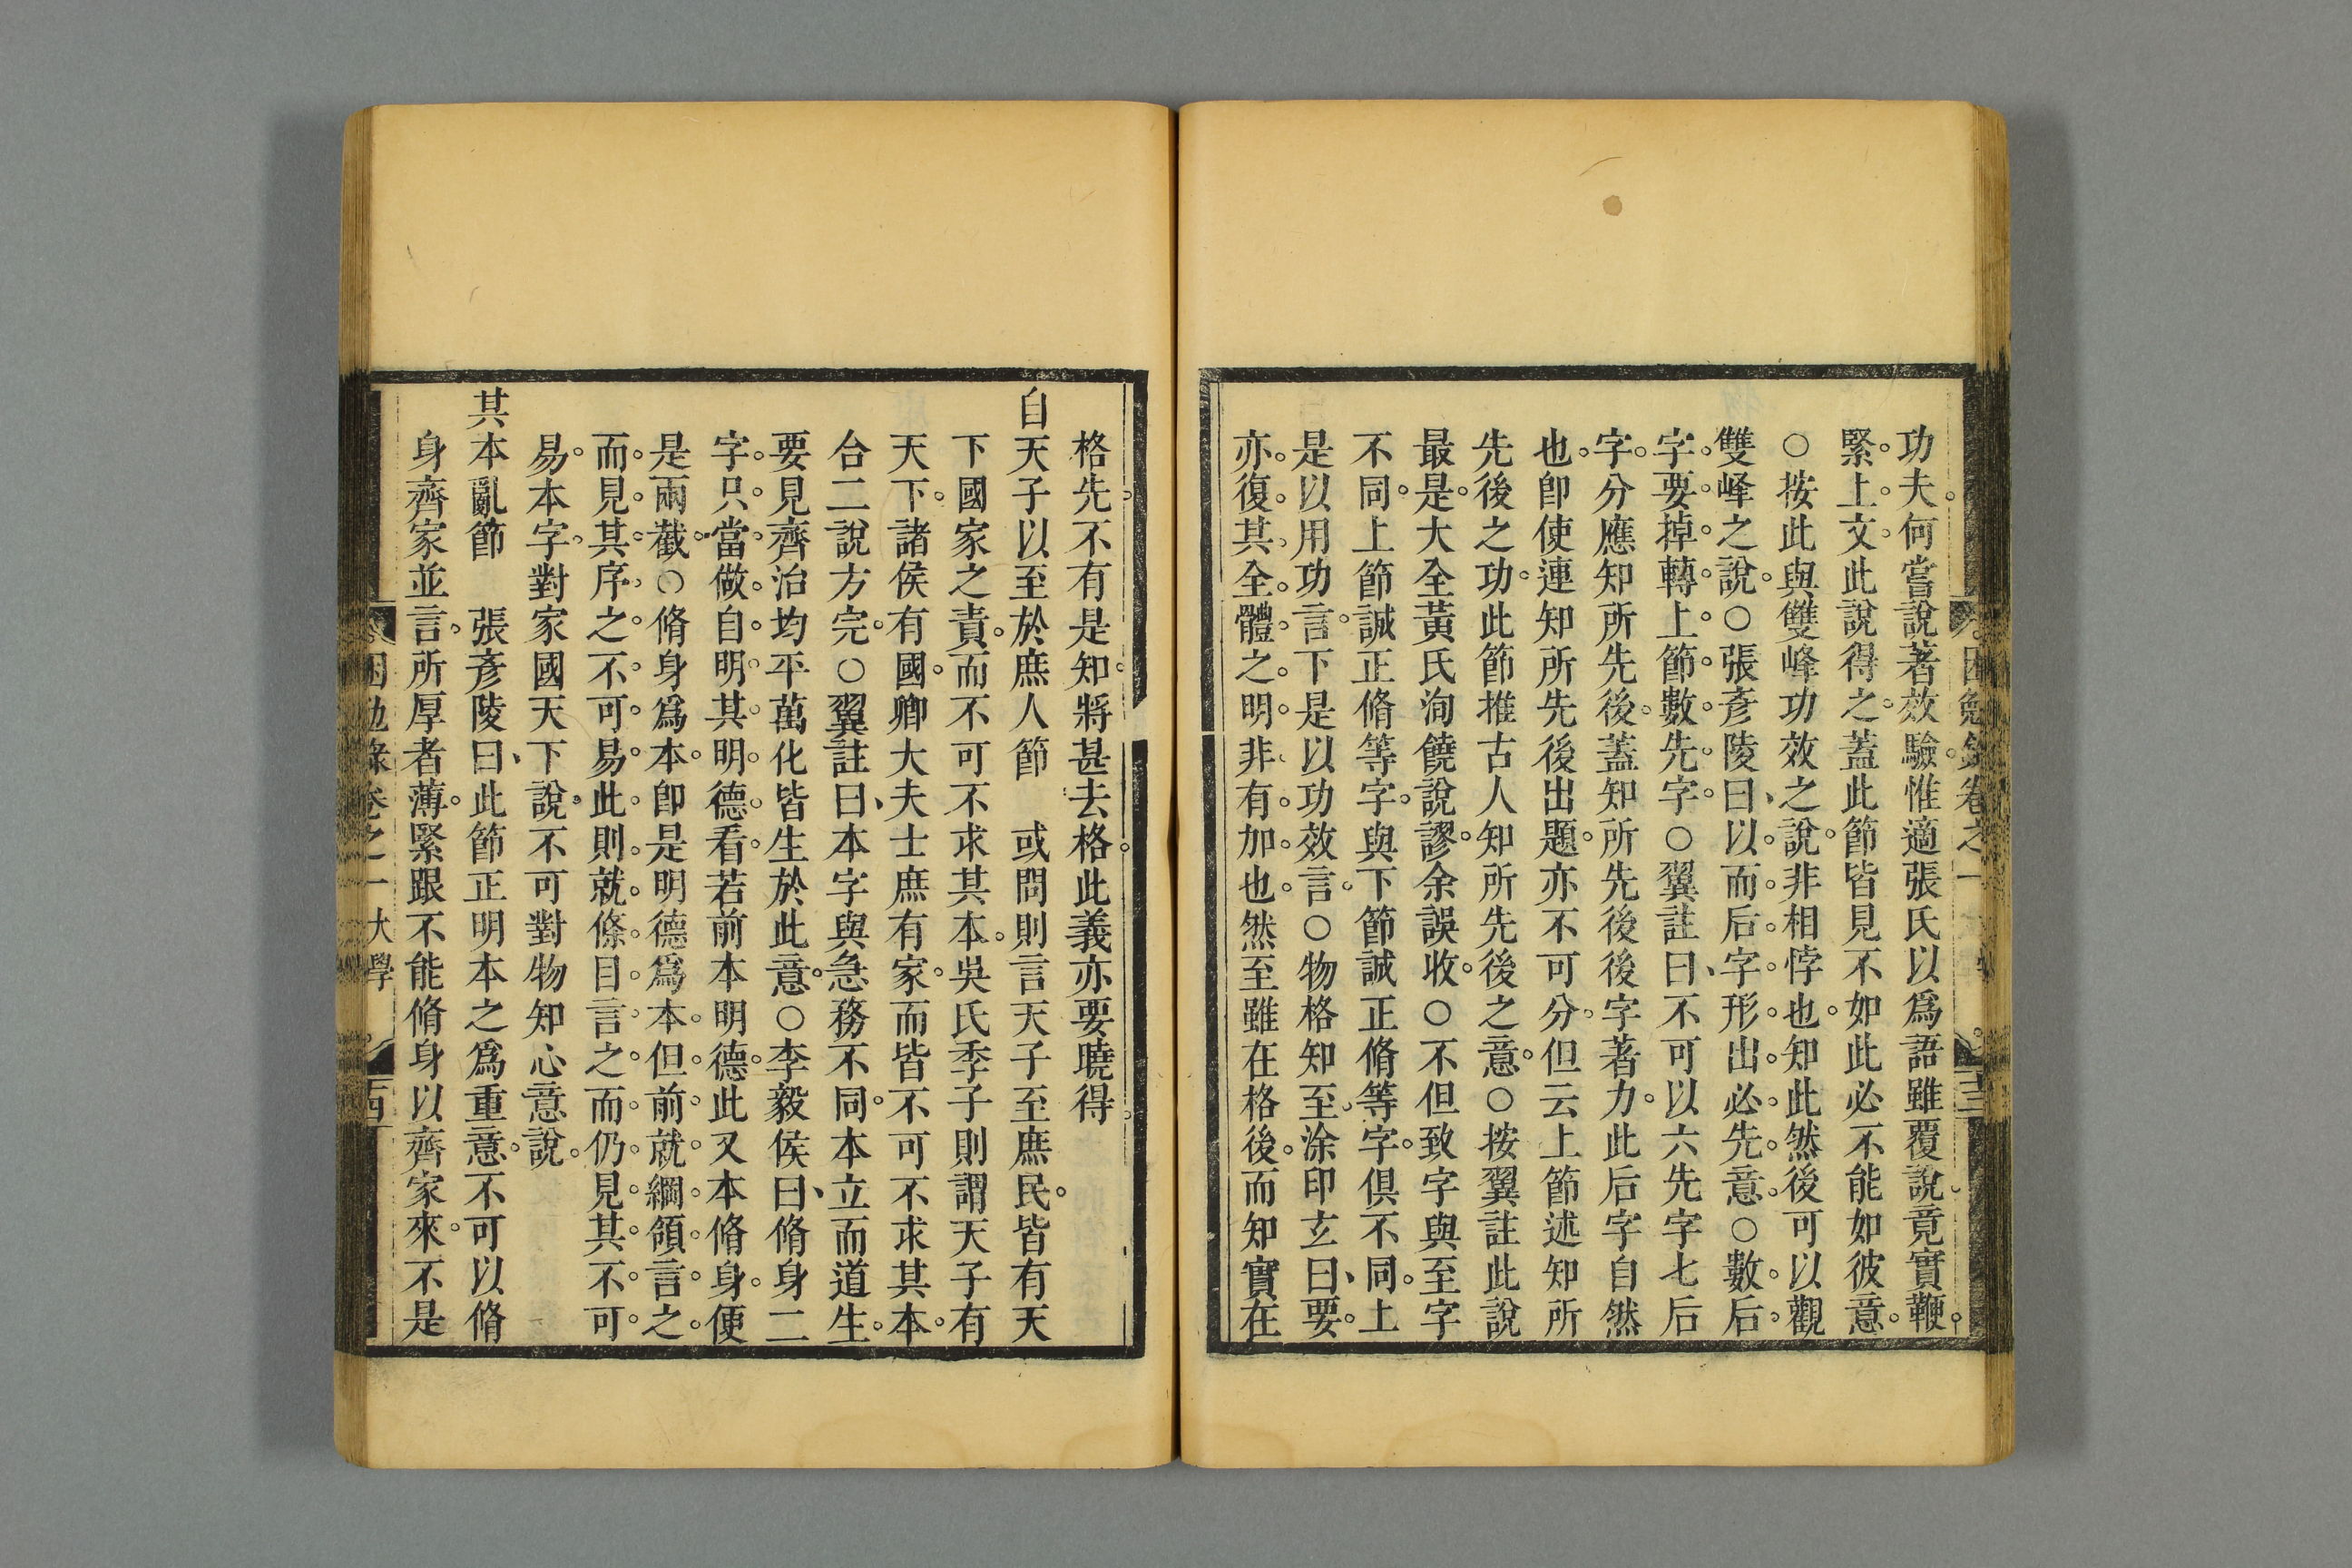 功夫何嘗說著效驗惟適張氏以爲語雖覆說竟實鞭
緊上文此說得之蓋此節皆見不如此必不能如彼意
○按此與雙峰功效之說非相悖也知此然後可以觀
雙峰之說○張彥陵曰以而后字形出必先意○數后
字要掉轉上節數先字○翼註曰不可以六先字七后
字分應知所先後蓋知所先後後字著力此后字自然
也卽使連知所先後出題亦不可分但云上節述知所
先後之功此節推古人知所先後之意○按翼註此說
最是大全黃氏洵饒說謬余誤收○不但致字與至字
不同上節誠正脩等字與下節誠正脩等字俱不同上
是以用功言下是以功效言○物格知至涂印玄曰要
亦復其全體之明非有加也然至雖在格後而知實在
格先不有是知將甚去格此義亦要曉得
自天子以至於庶人節　或問則言天子至庶民皆有天
下國家之責而不可不求其本吳氏季子則謂天子有
天下諸侯有國卿大夫士庶有家而皆不可不求其本
合二說方完○翼註曰本字與急務不同本立而道生
要見齊治均平萬化皆生於此意○李毅侯曰脩身二
字只當做自明其明德看若前本明德此又本脩身便
是兩截○脩身爲本卽是明德爲本但前就綱領言之
而見其序之不可易此則就條目言之而仍見其不可
易本字對家國天下說不可對物知心意說
其本亂節　張彥陵曰此節正明本之爲重意不可以脩
身齊家並言所厚者薄緊跟不能脩身以齊家來不是
困勉錄卷之一 大學 十四